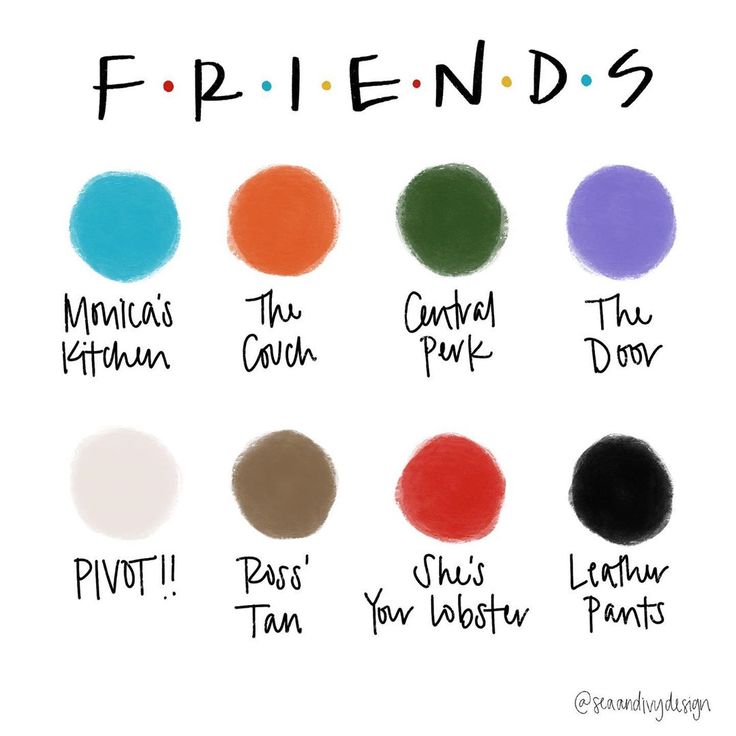 F•R•I•E•N•D•S
Monica's
Kitchen
The
Couch
Central
Perk
The
Door
PIVOT!!
Ross'
Tan
She's
Your Lobster
Leather
Pants
@seaandivydesign